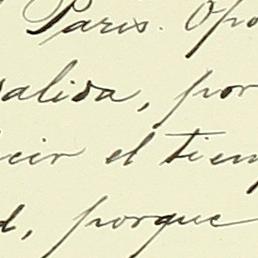 Paris. Opo
salida, por
cir el tiem
d, porque